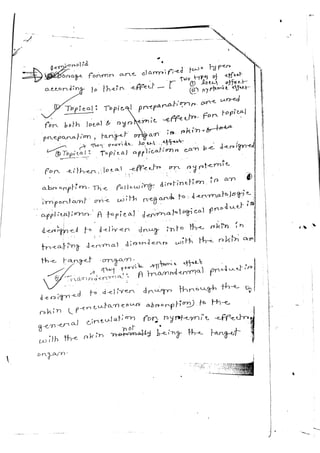 Semisolid
Dosage forms are classified two types
according to their effect —
Two types of effect
① Local effect
② systemic effect
Topical: Topical preparations are used
for both local & systemic effects. For topical
preparation, target organ is skin
They provide local effect
Topical: Topical applications can be designed
for either local effects or systemic
absorption. The following distinction is an
important one with regards to dermatologic
application. A topical dermatological product is
designed to deliver drug into the skin in
treating dermal disorders with the skin as
the target organ.
They provide systemic effect
Transdermal: A transdermal product is
designed to deliver drugs through the
skin (percutaneous absorption) to the
general circulation for systemic effects
with the skin not normally being the target
organ.